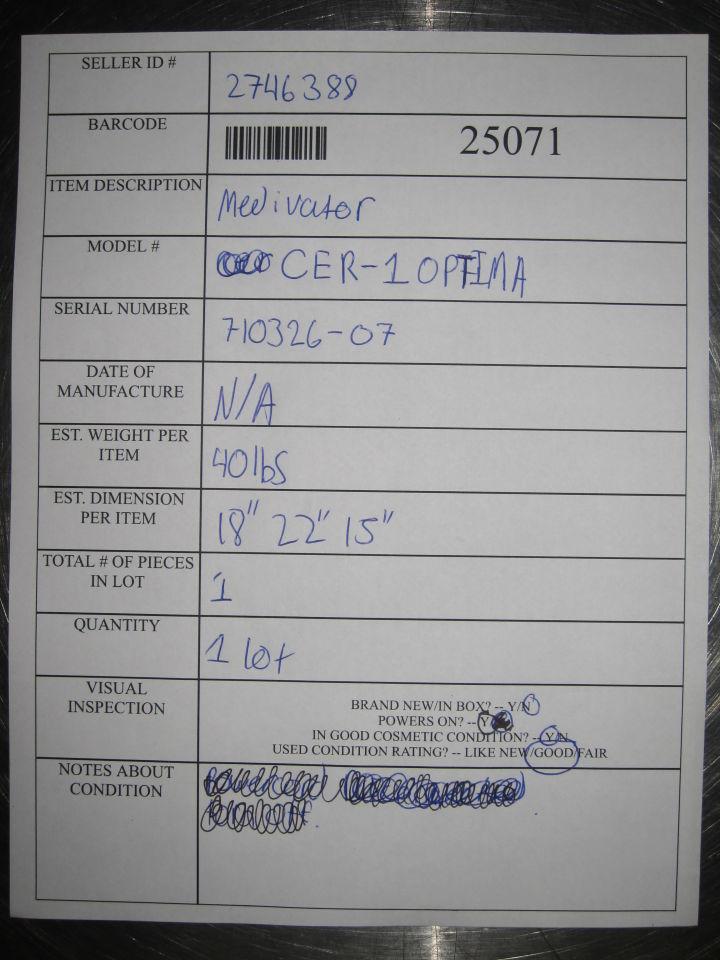 SELLER ID # 2746388
BARCODE 25071
ITEM DESCRIPTION Medivator
MODEL # CER-1 OPTIMA
SERIAL NUMBER 710326-07
DATE OF
MANUFACTURE N/A
EST. WEIGHT PER
ITEM 40lbs
EST. DIMENSION
PER ITEM 18" 22" 15"
TOTAL # OF PIECES
IN LOT 1
QUANTITY 1 lot
VISUAL
INSPECTION
BRAND NEW/IN BOX? -- Y/N
POWERS ON? -- Y
IN GOOD COSMETIC CONDITION? -- Y/N
USED CONDITION RATING? -- LIKE NEW/GOOD/FAIR
NOTES ABOUT
CONDITION